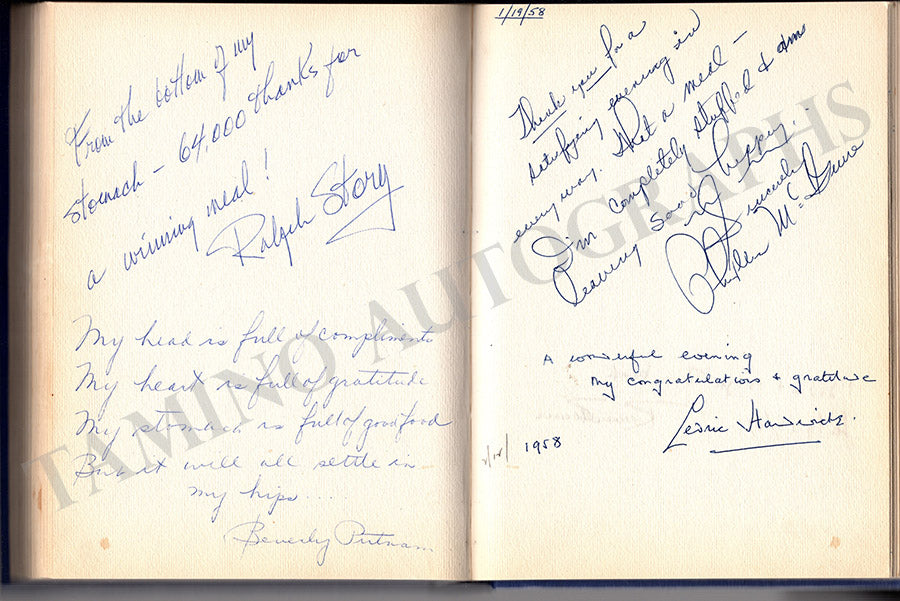 From the bottom of my
stomach – 64,000 thanks for
a winning meal!
Ralph Story
My head is full of compliments
My heart is full of gratitude
My stomach is full of good food
But it will all settle in
my hips....
Beverly Putnam
1/19/58
Thank you for a
satisfying evening in
every way. What a meal –
I'm completely stuffed & am
leaving so happy.
Sincerely
A wonderful evening
My congratulations & gratitude
1958
TAMINO AUTOGRAPHS